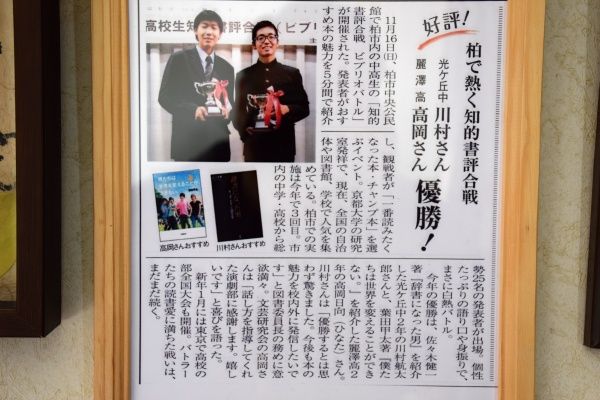 高校生知的書評合戦(ビブリ
好評!
柏で熱く知的書評合戦
光ケ丘中 川村さん
麗澤高 高岡さん
優勝!
11月16日(日)、柏市中央公民
館で柏市内の中高生の「知的
書評合戦、ビブリオバトル」
が開催された。発表者がおす
すめ本の魅力を5分間で紹介
し、観戦者が「一番読みたく
なった本・チャンプ本」を選
ぶイベント。京都大学の研究
室発祥で、現在、全国の自治
体や図書館、学校で人気を集
めている。柏市での実
施は今年で3回目。市
内の中学・高校から総
高岡さんおすすめ
川村さんおすすめ
勢25名の発表者が出場。個性
たっぷりの語り口や身振りで、
まさに白熱バトル。
今年の優勝は、佐々木健一
著『辞書になった男』を紹介
した光ケ丘中2年の川村航太
郎さんと、葉田甲太著『僕た
ちは世界を変えることができ
ない。』を紹介した麗澤高2
年の高岡日向(ひなた)さん。
川村さんは「優勝するとは思
わず驚きました。今後も本の
魅力を校内外に発信したいで
す」と図書委員の務めに意
欲満々。文芸研究会の高岡さ
んは「話し方を指導してくれ
た演劇部に感謝します。嬉し
いです」と喜びを語った。
新年1月には東京で高校の
部全国大会も開催。バトラー
たちの読書愛に満ちた戦いは、
まだまだ続く。